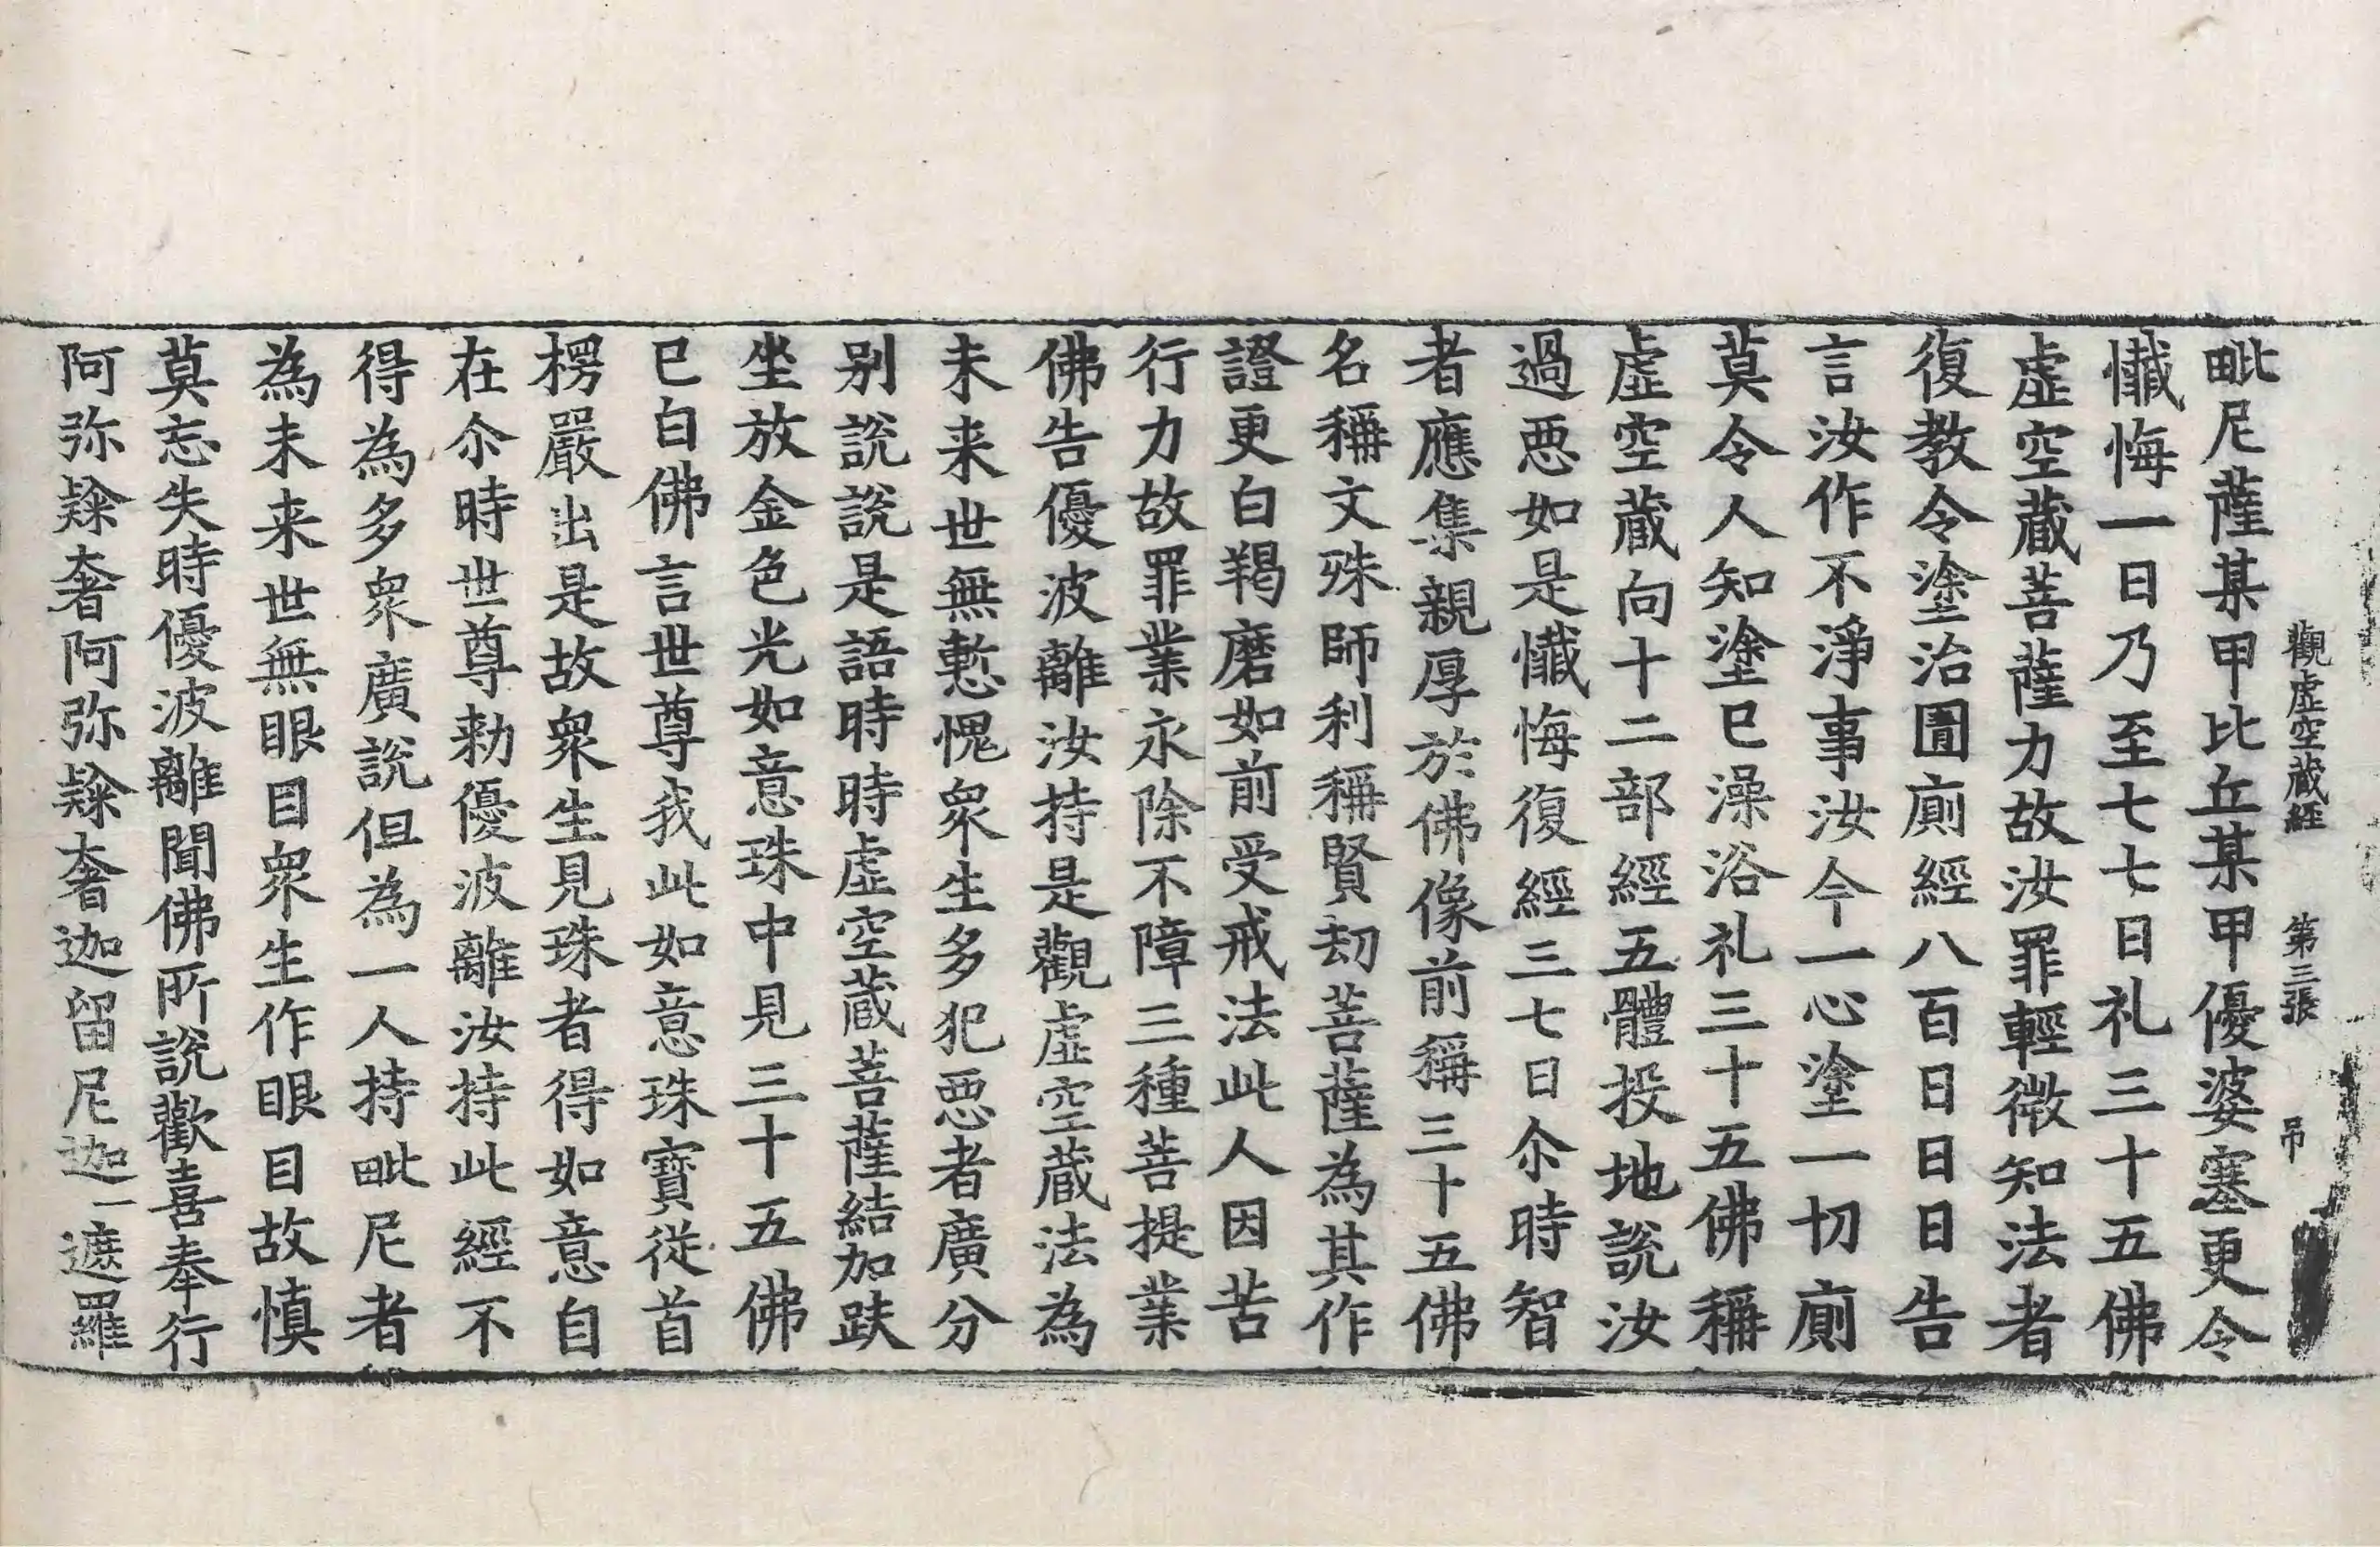 觀虛空蔵経　第三張　吊
毗尼薩某甲比丘某甲優婆塞更令
懺悔一日乃至七七日礼三十五佛
虛空蔵菩薩力故汝罪輕微知法者
復教令塗治圊廁經八百日日日告
言汝作不淨事汝今一心塗一切廁
莫令人知塗已澡浴礼三十五佛稱
虛空蔵向十二部經五體投地說汝
過悪如是懺悔復經三七日尒時智
者應集親厚於佛像前稱三十五佛
名稱文殊師利稱賢劫菩薩為其作
證更白羯磨如前受戒法此人因苦
行力故罪業永除不障三種菩提業
佛告優波離汝持是觀虛空蔵法為
未来世無慙愧衆生多犯悪者廣分
别說說是語時時虛空蔵菩薩結加趺
坐放金色光如意珠中見三十五佛
已白佛言世尊我此如意珠寶從首
楞嚴出是故衆生見珠者得如意自
在尒時世尊勑優波離汝持此經不
得為多衆廣說但為一人持毗尼者
為未来世無眼目衆生作眼目故慎
莫忘失時優波離聞佛所說歡喜奉行
阿弥𨽻奢阿弥𨽻奢迦留尼迦一遮羅